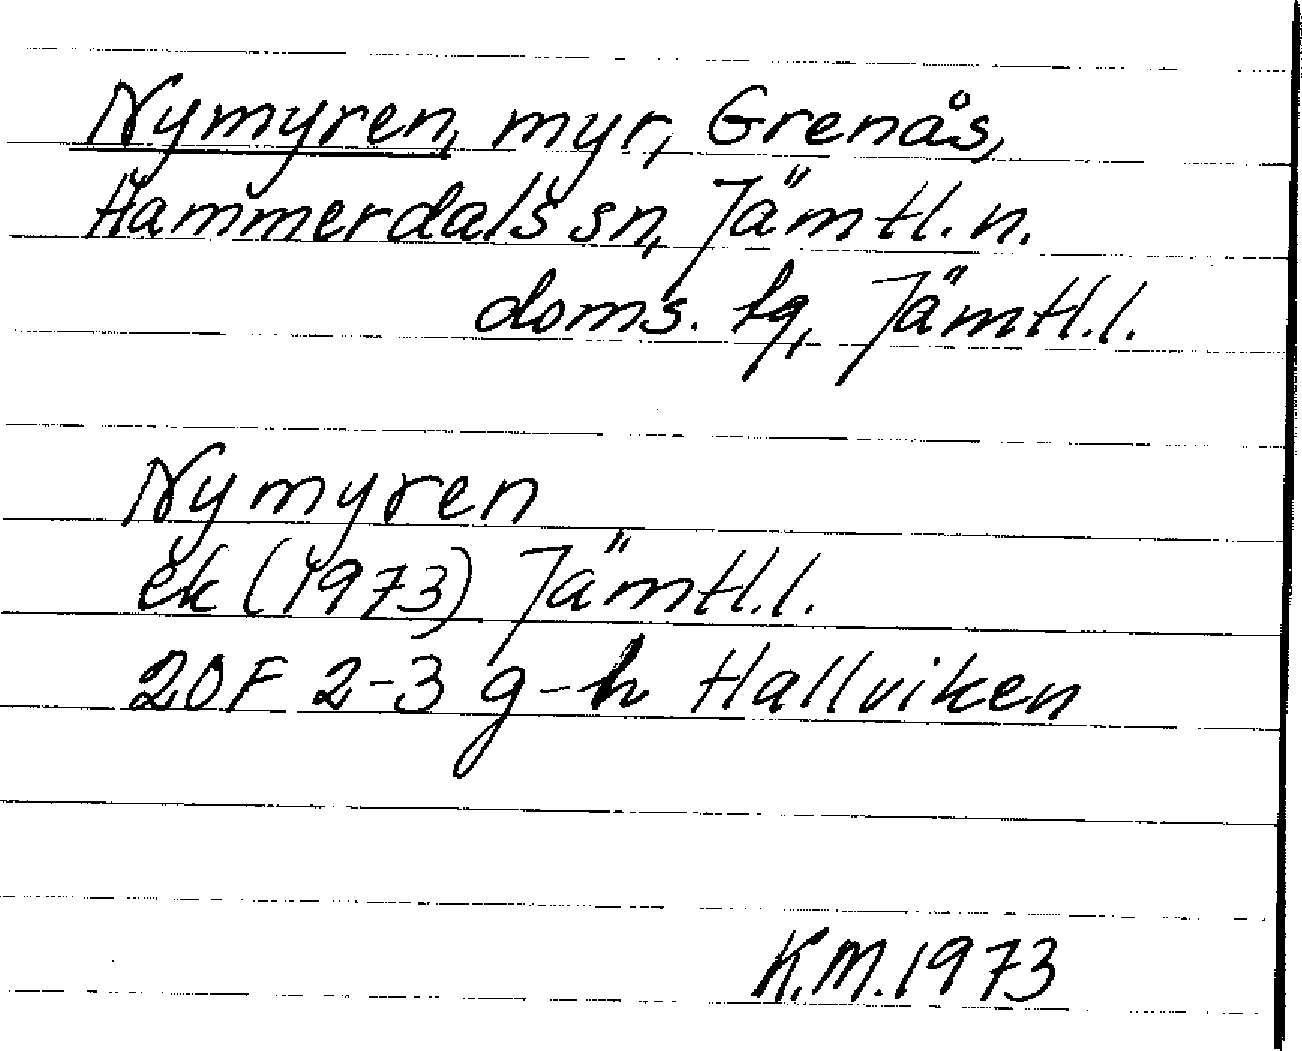 Nymyren, myr, Grenås,
Hammerdals sn, Jämtl. n.
doms. fg, Jämtl.l.
Nymyren
ek (1973) Jämtl.l.
20F 2-3 g-h Hallviken
K.M. 1973